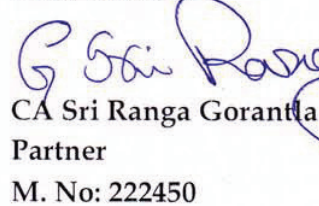 G Sri Rang
CA Sri Ranga Gorantla
Partner
M. No: 222450